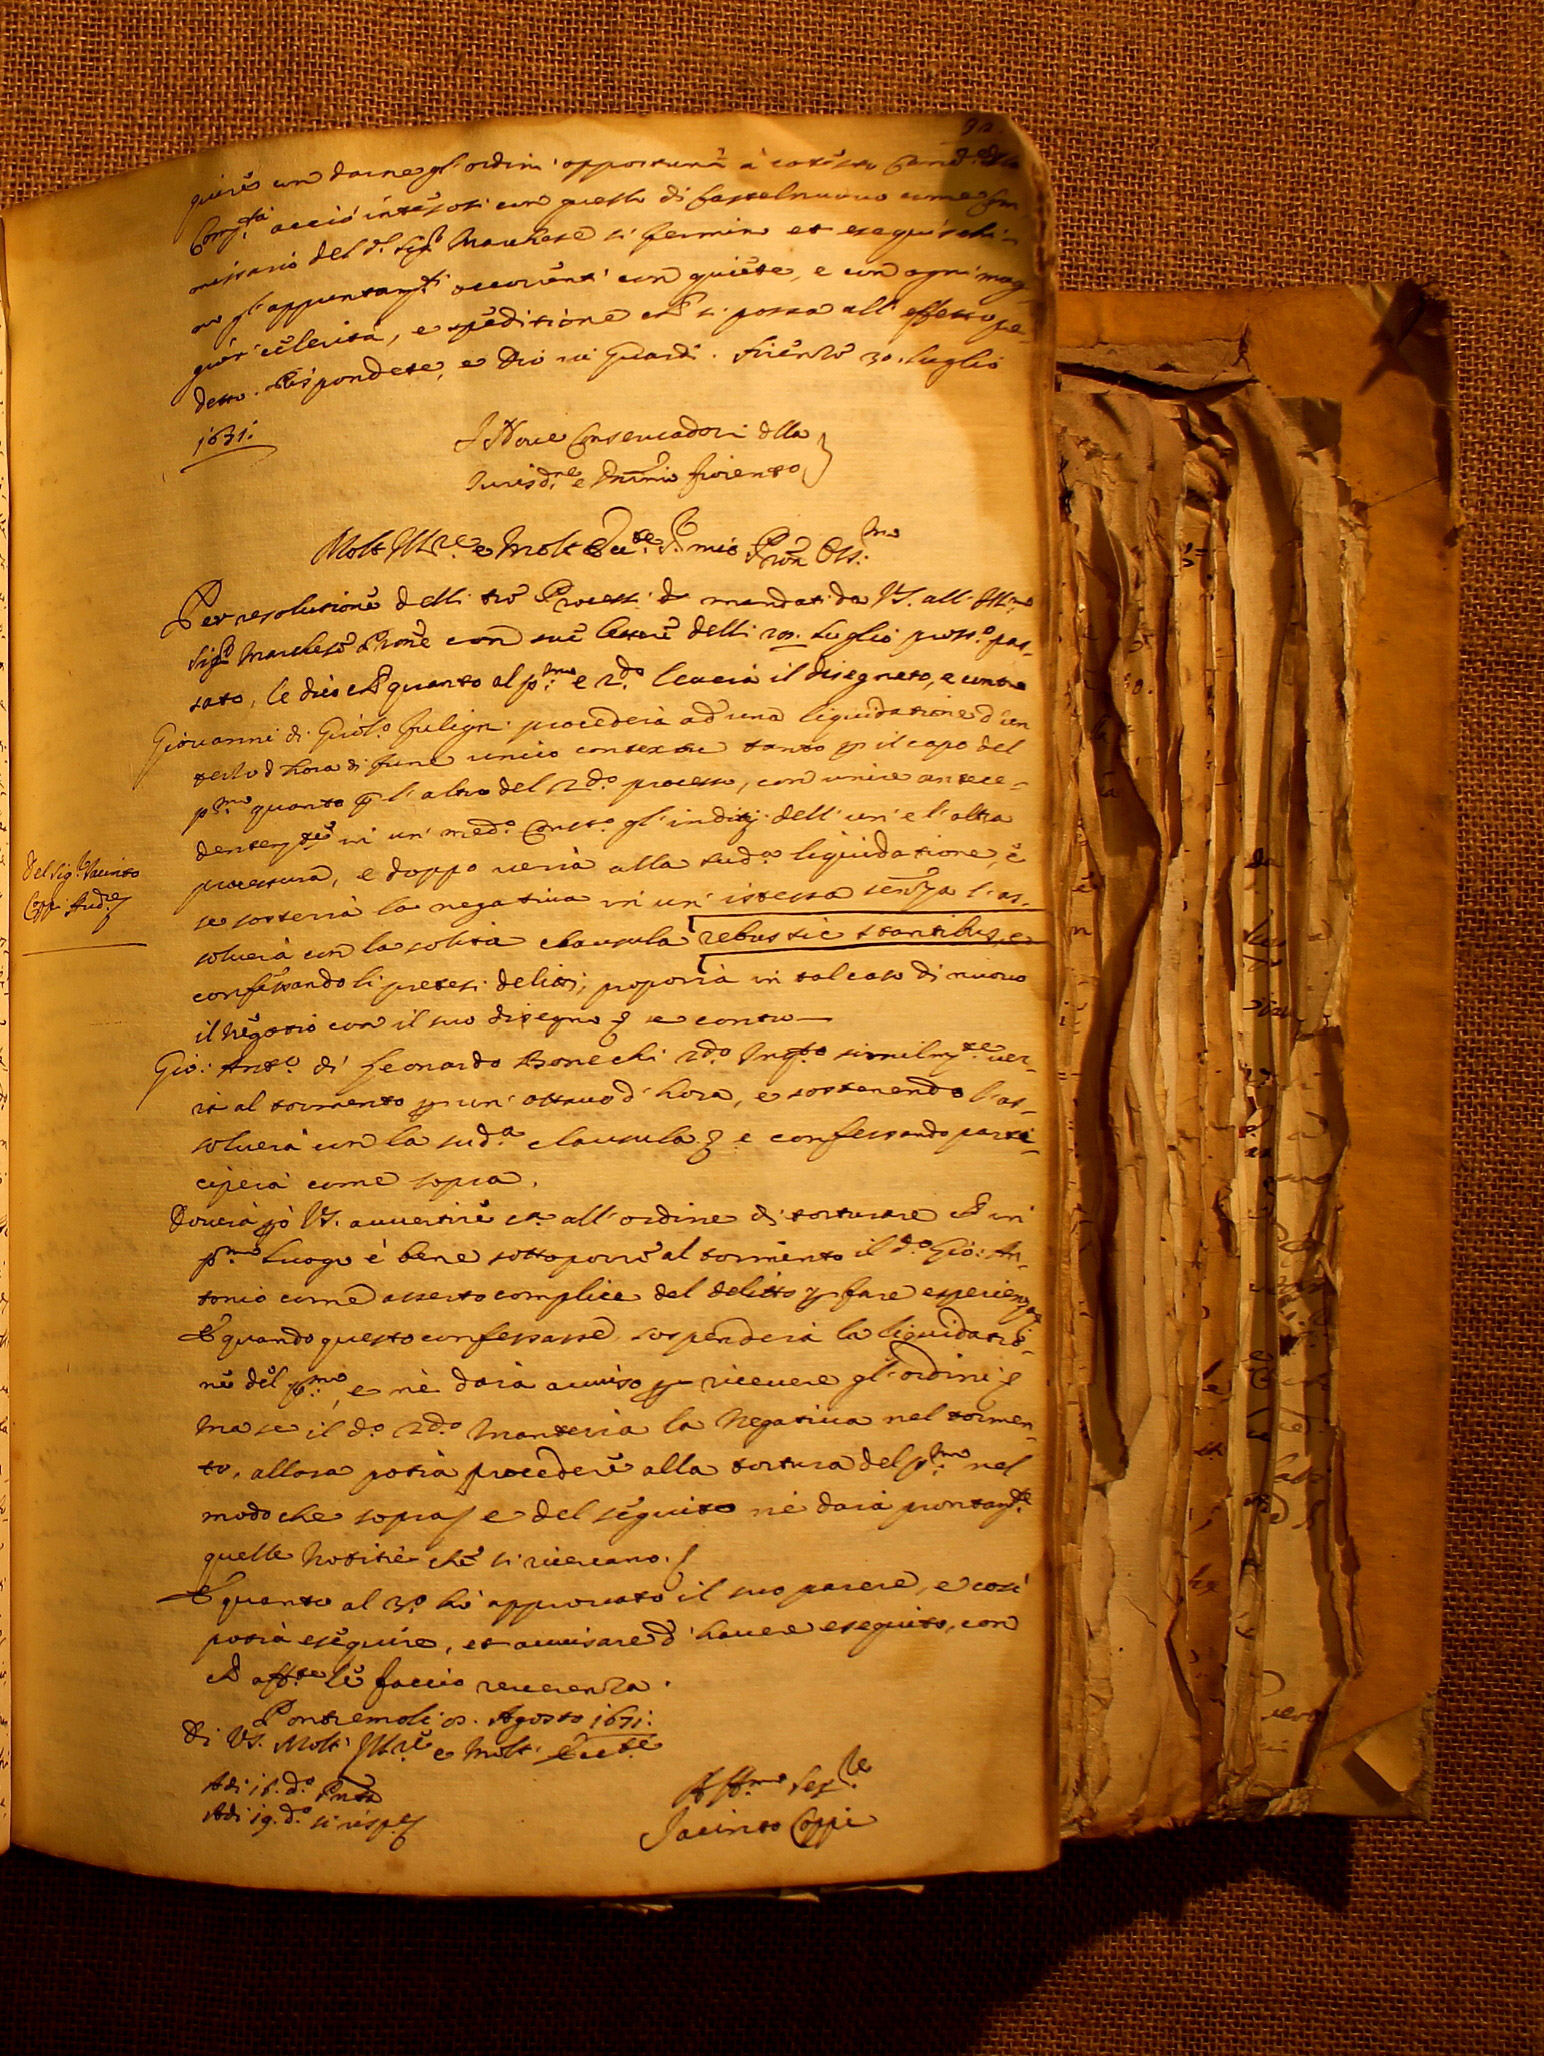 92
quire un darne gl'ordini opportuni à cotesta
Comtà acciò intesosi con questo di Castelnuouo come
missario del d. Sigr Marchese si fermino et eseguischi-
no gl'appuntamti occorrenti con quiete, e con ogni mag-
gior celerità, e speditione che si possa all'effetto pe-
detto. Rispondete, e Dio vi Guardi. Firenze 30. Luglio
1671.
I Noue Conseruadori della
Jurisdne e Dominio fiorentno
Molt Illre e Molt Ecte Sr mio Pron Oss.mo
Per resolutione delli tre Processi mandati da VS. all'Illmo
Sigr Marchese Prone con sue lettere delli 29. Luglio prosso pas-
sato, le dico che quanto al pmo e 2do leuerà il disegnato, e contro
Giouanni di Girolo Fuligni procederà ad una liquidatione d'un
terzo d'hora di fune unico contextu tanto p il capo del
pmo quanto p l'altro del 2do processo, con unire antece-
dentemte in un' medo Constto gl'inditij dell'un' e l'altra
processura, e doppo uerrà alla sudа liquidatione, e
se sosterrà la negatiua in un' istessa senza l'as-
soluerà con la solita clausula rebus sic stantibus, e
confessando li pretesi delitti, proporrà in tal caso di nuouo
il Negotio con il suo disegno e contro
Gio: Anto di Leonardo Bonechi 2do Inqto similmte uer-
rà al tormento p un' ottauo d'hora, e sostenendo l'as-
soluerà con la suda clausula e confessando parte-
ciperà come sopra.
Douerà pò VS. auuertire ca all'ordine di torturare che in
pmo Luogo è bene sottoporre al tormento il do Gio: An-
tonio come asserto complice del delitto p fare esperienza
E quando questo confessasse, sospenderà la liquidatio-
ne del pmo, e nè darà auuiso p riceuere gl'ordini
Ma se il do 2do Manterrà la Negatiua nel tormen-
to, allora potrà procedere alla tortura del pmo nel
modo che sopra e del seguito nè darà prontamte
quelle Notitie che si ricercano.
E quanto al 3o hò approuato il suo parere, e così
potrà eseguire, et auuisare d'hauere eseguito, con
che affte le faccio reuerenza.
Pontremoli Agosto 1671.
Di VS. Molt' Illre e Molt' Ecte
Adi 16. do Pnta
Adi 19. do si rispe
Affmo Sere
Jacinto Coppi
Del Sigr Jacinto
Coppi Audre